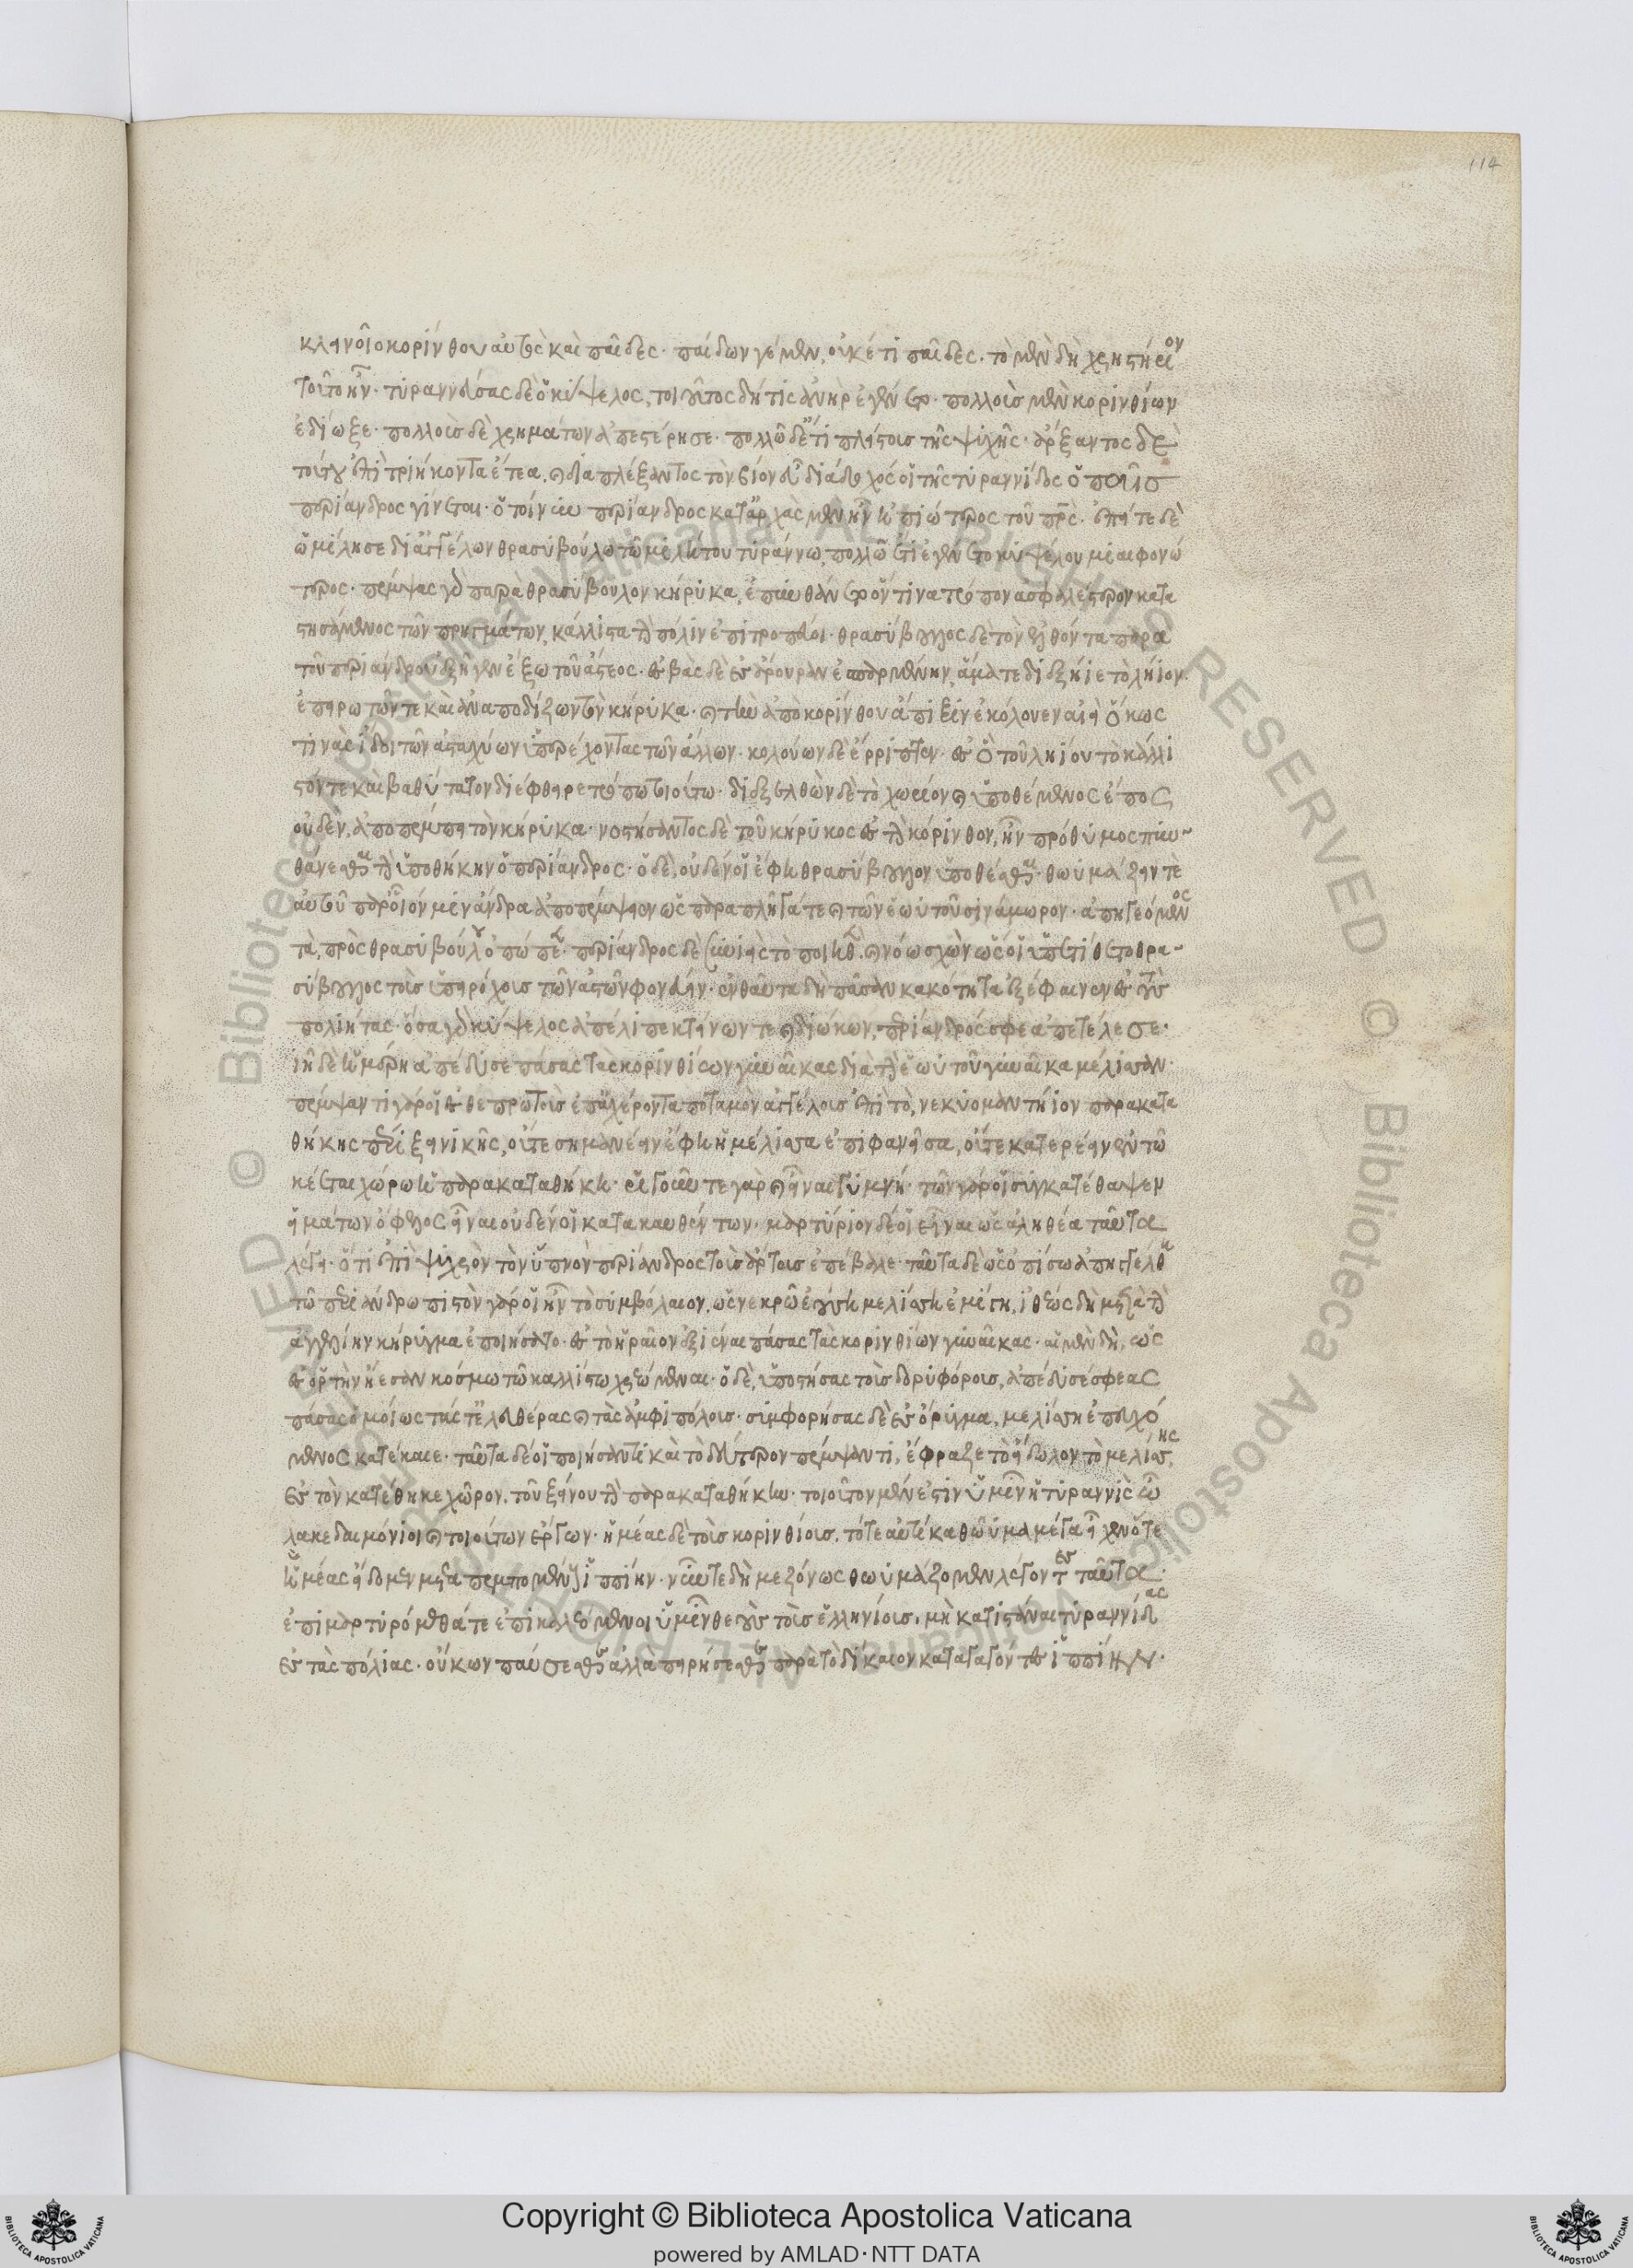 114
κλεινοῖο κορίνθου αὐτὸς καὶ παῖδες· παίδων γε μὲν, οὐκέτι παῖδες. τὸ μὲν δὴ χρηστήριον
τοῦτο ἦν· τυραννεύσας δὲ ὁ κύψελος, τοιοῦτος δή τις ἀνὴρ ἐγένετο· πολλοὺς μὲν κορινθίων
ἐδίωξε· πολλοὺς δὲ χρημάτων ἀπεστέρησε· πολλῶ δέ τι πλείστους τῆς ψυχῆς· ἄρξαντος δὲ
τούτου ἐπὶ τριήκοντα ἔτεα. καὶ διαπλέξαντος τὸν βίον εὖ διάδοχός οἱ τῆς τυραννίδος ὁ παῖς
περίανδρος γίνεται· ὁ τοίνυν περίανδρος καταρχὰς μὲν ἦν ἠπιώτερος τοῦ πατρός· ἐπείτε δὲ
ὡμίλησε δι ἀγγέλων θρασυβούλω τῶ μιλήτου τυράννω, πολλῶ ἔτι ἐγένετο κυψέλου μιαιφονώ
τερος· πέμψας γὰρ παρὰ θρασύβουλον κήρυκα, ἐπυνθάνετο ὅντινα τρόπον ἀσφαλέστερον κατα
στησάμενος τῶν πρηγμάτων, κάλλιστα τὴν πόλιν ἐπιτροπεύοι· θρασύβουλος δὲ τὸν ἐλθόντα παρα
τοῦ περιάνδρου ἐξῆγεν ἔξω τοῦ ἄστεος· ἐσβὰς δὲ ἐς ἄρουραν ἐσπαρμένην, ἅμα τε διεξήιε τὸ λήιον
ἐπειρωτῶν τε καὶ ἀναποδίζων τὸν κήρυκα· κατὰ τὴν ἀπὸ κορίνθου ἄπιξιν ἐκόλουε ναιεὶ ὅκως
τινὰς ἴδοι τῶν ἀσταχύων ὑπερέχοντας τῶν ἄλλων· κολούων δὲ ἔρριπτεν· ἐς ὃ τοῦ ληίου τὸ κάλλι
στόν τε καὶ βαθύτατον διέφθειρε τρόπω τοιούτω· διεξελθὼν δὲ τὸ χωρίον καὶ ὑποθέμενος ἔπος
οὐδὲν, ἀποπέμπει τὸν κήρυκα· νοστήσαντος δὲ τοῦ κήρυκος ἐς τὴν κόρινθον, ἦν πρόθυμος πυν-
θάνεσθαι τὴν ὑποθήκην ὁ περίανδρος· ὁ δὲ, οὐδέν οἱ ἔφη θρασύβουλον ὑποθέσθαι· θωυμάζειν τὲ
αὐτοῦ παρ οἷόν μιν ἄνδρα ἀποπέμψειεν ὡς παραπλῆγά τε καὶ τῶν ἑωυτοῦ σινάμωρον· ἀπηγεόμενος
τὰ, πρὸς θρασυβούλου ὀπώπεε· περίανδρος δὲ συνιεὶς τὸ ποιηθὲν καὶ νόω σχὼν ὥς οἱ ὑπετίθετο θρα-
σύβουλος τοὺς ὑπειρόχους τῶν ἀστῶν φονεύειν· ἐνθαῦτα δὴ πᾶσαν κακότητα ἐξέφαινεν ἐς τοὺς
πολιήτας· ὅσα γὰρ κύψελος ἀπέλιπε κτείνων τε καὶ διώκων, περίανδρός σφεα ἀπετέλεσε·
ιῆ δὲ ἡμέρη ἀπέδυσε πάσας τὰς κορινθίων γυναῖκας διὰ τὴν ἑωυτοῦ γυναῖκα μέλισσαν·
πέμψαντι γάρ οἱ ἐς θεπρωτοὺς ἐπαχέροντα ποταμὸν ἀγγέλους ἐπὶ τὸ, νεκυομαντήιον παρακατα
θήκης πέρι ξεινικῆς, οὔτε σημανέειν ἔφη ἡ μέλισσα ἐπιφανεῖσα, οὔτε κατερέειν ἐν τῶ
κέεται χώρω ἡ παρακαταθήκη· ῥιγοῦν τε γὰρ καὶ εἶναι γυμνή· τῶν γάρ οἱ συγκατέθαψεν
εἱμάτων ὄφελος εἶναι οὐδέν οὐ κατακαυθέντων· μαρτύριον δέ οἱ εἶναι ὡς ἀληθέα ταῦτα
λέγει· ὅτι ἐπὶ ψυχρὸν τὸν ἰπνὸν περίανδρος τοὺς ἄρτους ἐπέβαλε· ταῦτα δὲ ὡς ὀπίσω ἀπηγγέλθη
τῶ περιάνδρω πιστὸν γάρ οἱ ἦν τὸ συμβόλαιον, ὡς νεκρῶ ἐούση μελίσση ἐμίγη, ἰθέως δὴ μετὰ τὴν
ἀγγελίην κήρυγμα ἐποιήσατο· ἐς τὸ ἥραιον ἐξιέναι πάσας τὰς κορινθίων γυναῖκας· αἱ μὲν δὴ, ὡς
ἐς ὁρτὴν ἤεσαν κόσμω τῶ καλλίστω χρεώμεναι· ὁ δὲ, ὑποστήσας τοὺς δορυφόρους, ἀπέδυσέ σφεας
πάσας ὁμοίως τάς τ ἐλευθέρας καὶ τὰς ἀμφιπόλους· συμφορήσας δὲ ἐς ὄρυγμα, μελίσση ἐπευχό
μενος κατέκαιε· ταῦτα δέ οἱ ποιήσαντι καὶ τὸ δεύτερον πέμψαντι, ἔφραξε τὸ εἴδωλον τὸ μελίσσης
ἐς τὸν κατέθηκε χῶρον, τοῦ ξείνου τὴν παρακαταθήκην· τοιοῦτον μέν ἐστιν ὑμῖν ἡ τυραννὶς ὦ
λακεδαιμόνιοι καὶ τοιούτων ἔργων· ἡμέας δὲ τοὺς κορινθίους, τότε αὐτίκα θωῦμα μέγα εἶχεν ὅτε
ὑμέας εἴδομεν μεταπεμπομένους ἱππίην· νῦν τε δὴ μεζόνως θωυμάζομεν λέγοντες ταῦτα·
ἐπιμαρτυρόμεθά τε ἐπικαλεόμενοι ὑμῖν θεοὺς τοὺς ἑλληνίους, μὴ κατιστάναι τυραννίδας
ἐς τὰς πόλιας· οὔκων παύσεσθε ἀλλὰ πειρήσεσθε παρὰ τὸ δίκαιον κατάγοντες ἱππίην·
Copyright © Biblioteca Apostolica Vaticana
powered by AMLAD·NTT DATA